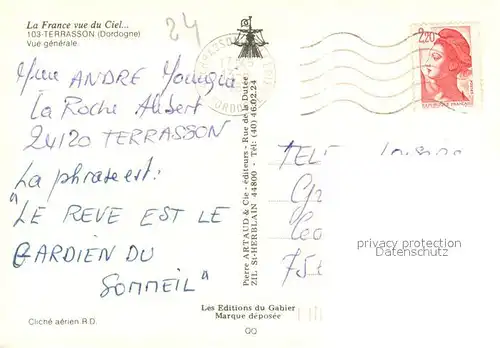 La France vue du Ciel...
103-TERRASSON (Dordogne)
Vue générale
24
Mme ANDRE
La Roche Alibert
24120 TERRASSON
La phrase est:
"LE REVE EST LE
GARDIEN DU
SOMMEIL"
Cliché aérien R.D.
Pierre ARTAUD & Cie - éditeurs - Rue de la Dutée
ZIL St-HERBLAIN 44800 - Tél: (40) 46.02.24
Les Editions du Gabier
Marque déposée
2,20
REPUBLIQUE FRANÇAISE
TELE
75
privacy protection
Datenschutz